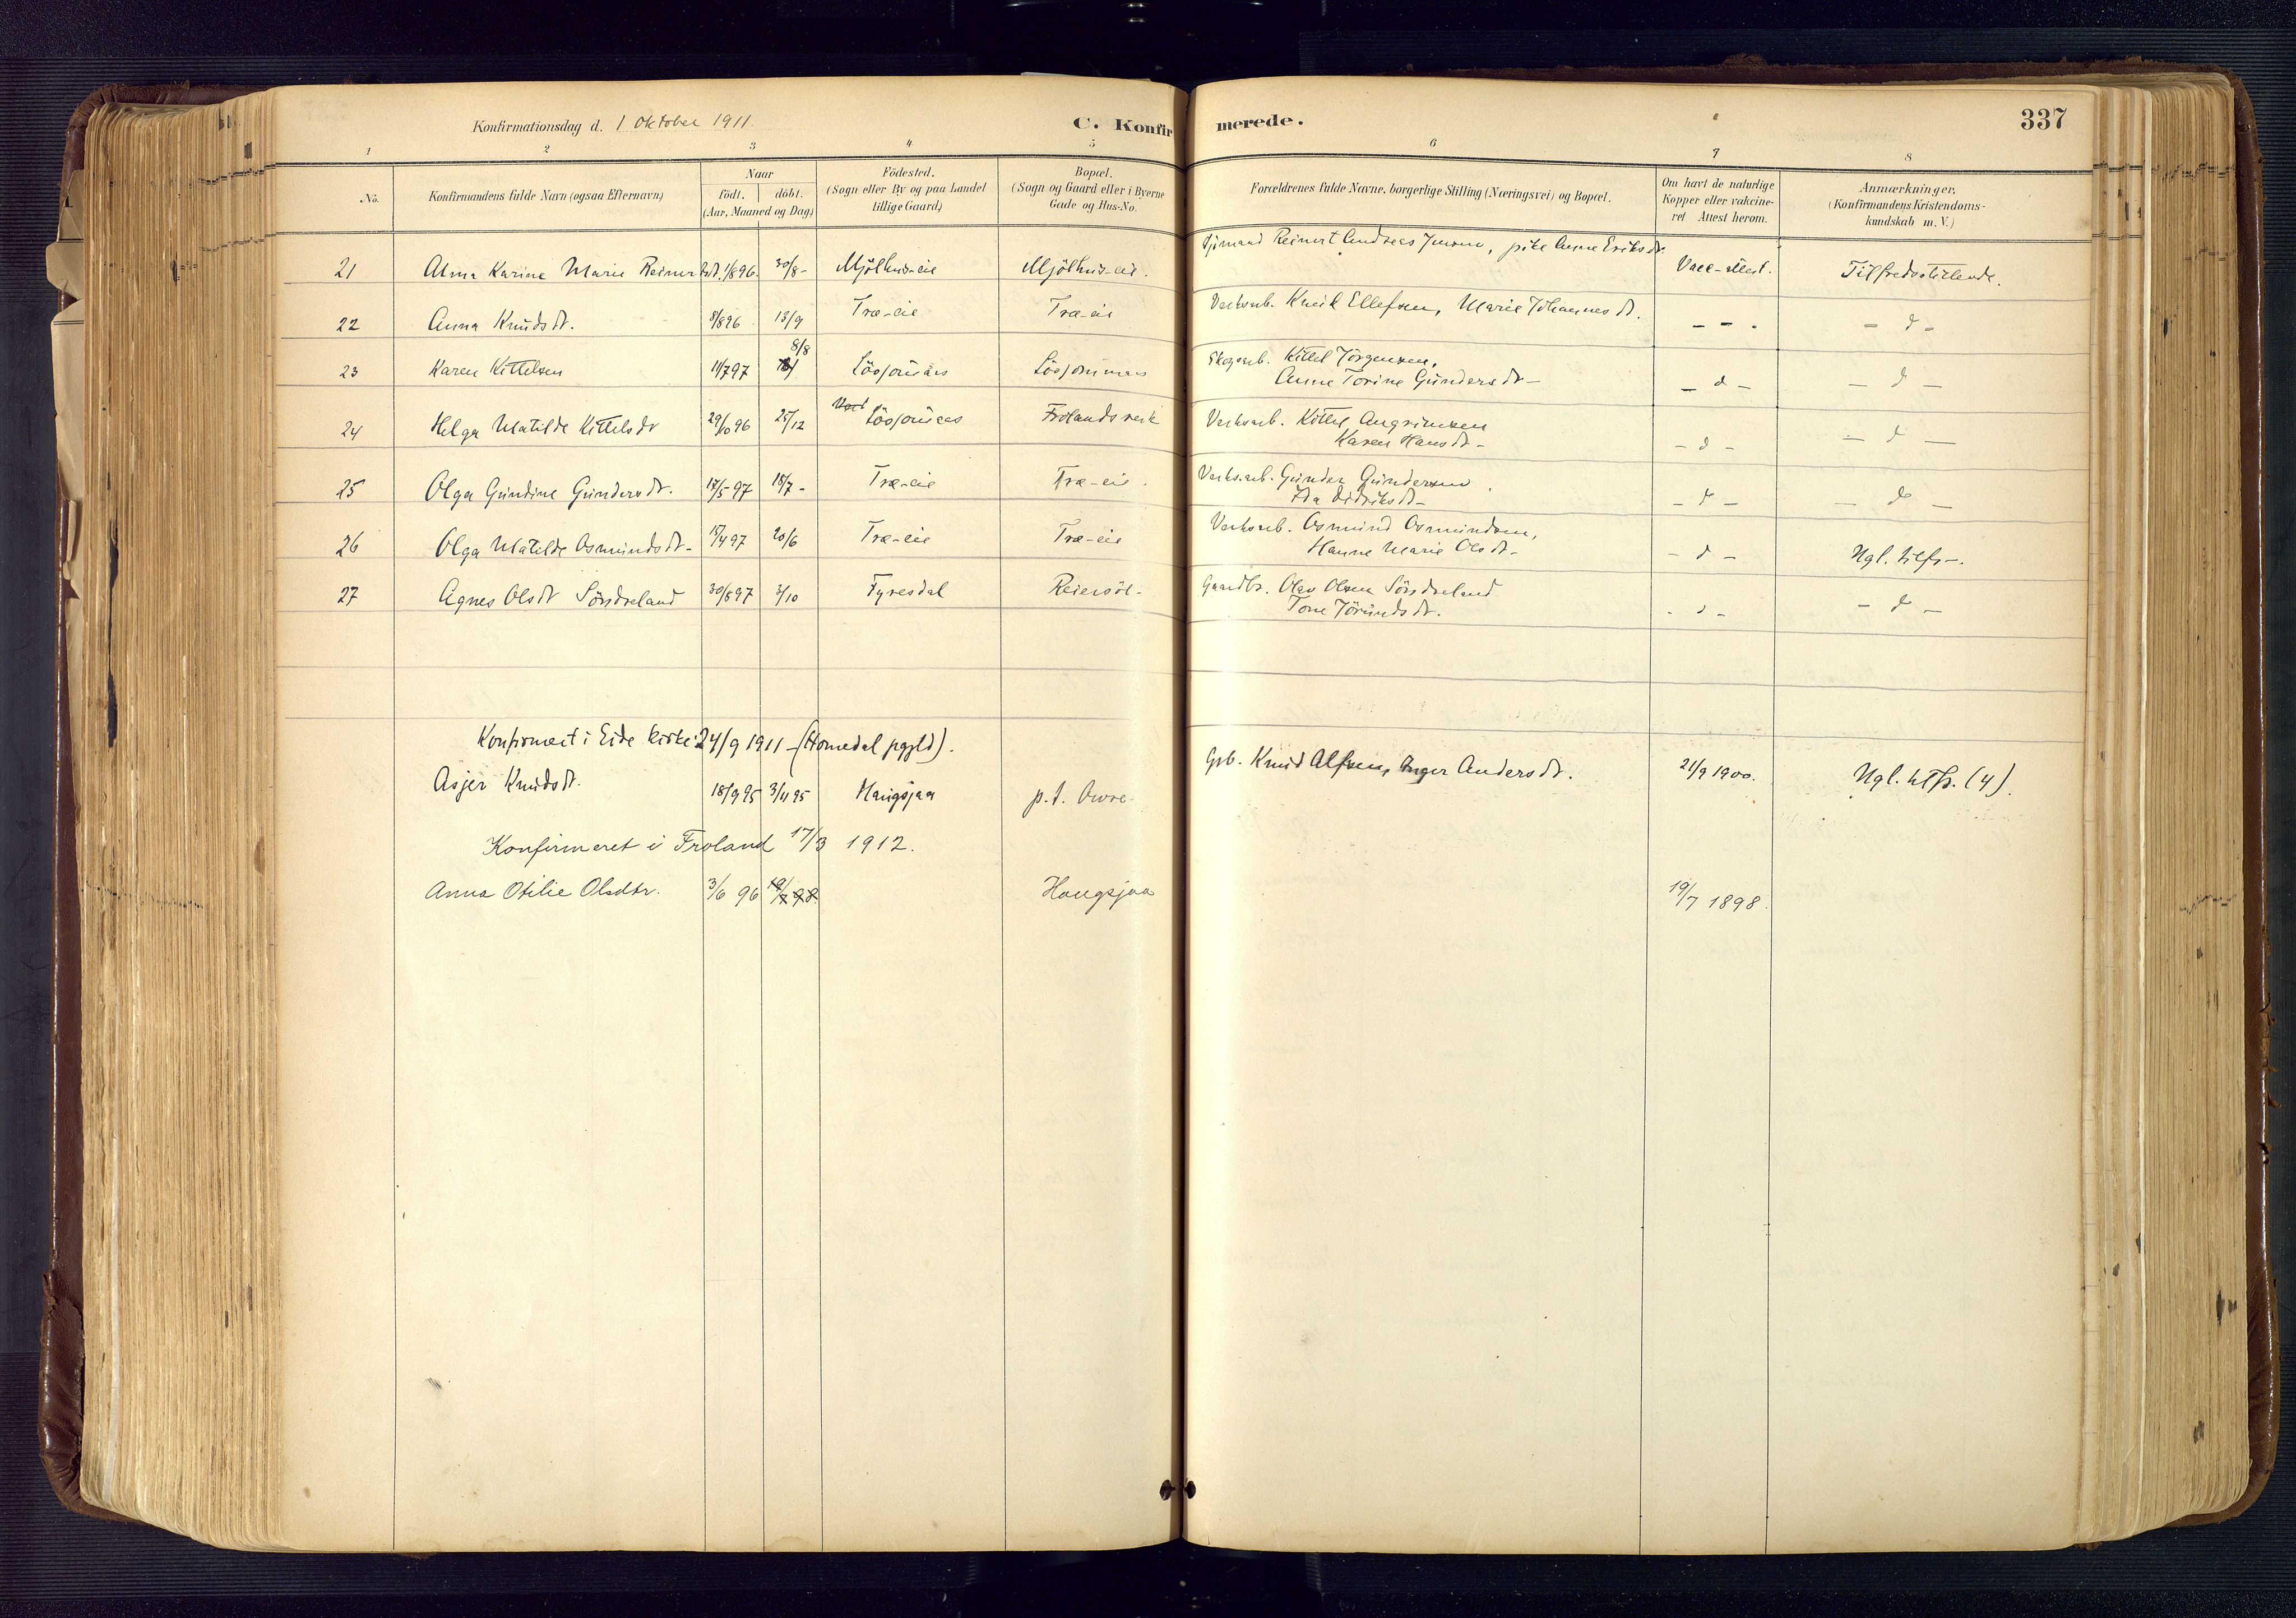 Konfirmationsdag d. 1 Oktober 1911.
C. Konfirmerede.
337
1 2 3 4 5 6 7 8
No.
Konfirmandens fulde Navn (ogsaa Efternavn)
Naar
födt. döbt.
(Aar, Maaned og Dag)
Födested.
(Sogn eller By og paa Landet
tillige Gaard)
Bopæl.
(Sogn og Gaard eller i Byerne
Gade og Hus-No.
Forældrenes fulde Navne, borgerlige Stilling (Næringsvei) og Bopæl.
Om havt de naturlige
Kopper eller vakcine-
ret Attest herom.
Anmærkninger.
(Konfirmandens Kristendoms-
kundskab m. V.)
21 Alma Karine Marie Reinertsdt. 1/8 96. 30/8- Mjölhus-eie Mjölhus-eie. Reinert Andreas Jensen, pike Anne Eriksdt. Vacc-attest. Tilfredsstillende.
22 Anna Knudsdt. 8/8 96 13/9 Træ-eie Træ-eie Verksarb. Knud Ellefsen, Marie Johannesdt. - - - - d -
23 Karen Kittelsen 11/7 97 8/8 Skogsarb. Kittel Jörgensen,
Anne Torine Gundersdt- - d - - d -
24 Helga Matilde Kittelsdt 29/10 96 25/12 Frolandsverk Verksarb. Kittel Angrimsen
Karen Hansdt- - d - - d -
25 Olga Gundine Gundersdt. 17/5 97 18/7- Træ-eie Træ-eie. Verksarb. Gunder Gundersen.
Ida Didriksdt- - d - - d -
26 Olga Matilde Osmundsdt- 17/4 97 20/6 Træ-eie Træ-eie Verksarb. Osmund Osmundsen,
Hanne Marie Olsdt- - d - Ngl. tilfr-.
27 Agnes Olsdt Söndreland 30/8 97 3/10 Fyresdal Reiersöl- Gaardbr. Olav Olsen Söndreland
Tone Jörundsdt. - d - - d -
Konfirmert i Eide kirke 24/9 1911 - (Homedal pgjld).
Asjer Knudsdt. 18/9 95 3/11 95 Haugsjaa p.t. Gsb. Knud Alfsen, Inger Andersdt. 21/9 1900. Ngl. tilfr. (4).
Konfirmeret i Froland 17/3 1912.
Anna Otilie Olsdtr. 3/6 96 19/7 98. Haugsjaa 19/7 1898.